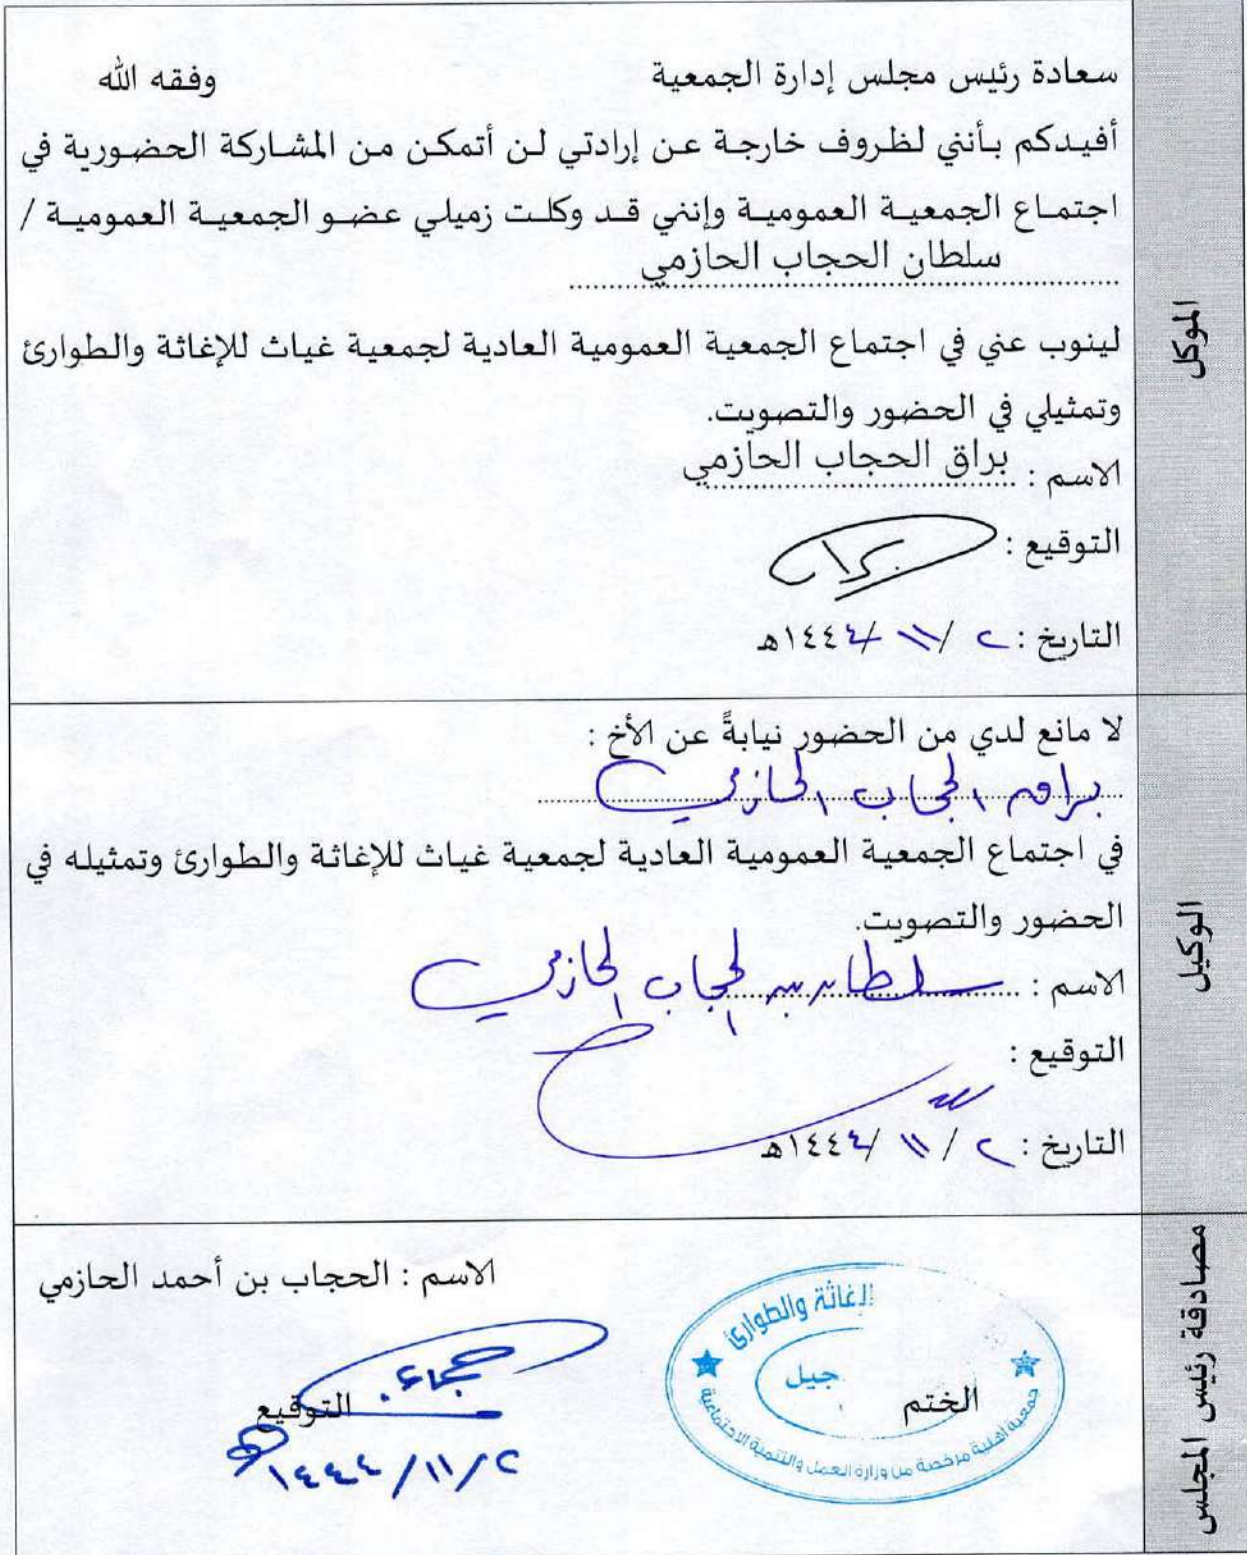 الموكل
سعادة رئيس مجلس إدارة الجمعية وفقه الله
أفيدكم بأنني لظروف خارجة عن إرادتي لن أتمكن من المشاركة الحضورية في
اجتماع الجمعية العمومية وإنني قد وكلت زميلي عضو الجمعية العمومية /
سلطان الحجاب الحازمي
لينوب عني في اجتماع الجمعية العمومية العادية لجمعية غياث للإغاثة والطوارئ
وتمثيلي في الحضور والتصويت.
الاسم : براق الحجاب الحازمي
التوقيع : براق
التاريخ : ٢ / ١١ / ١٤٤٤هـ
الوكيل
لا مانع لدي من الحضور نيابةً عن الأخ :
براق الحجاب الحازمي
في اجتماع الجمعية العمومية العادية لجمعية غياث للإغاثة والطوارئ وتمثيله في
الحضور والتصويت.
الاسم : سلطان بن الحجاب الحازمي
التوقيع :
التاريخ : ٢ / ١١ / ١٤٤٤هـ
مصادقة رئيس المجلس
الاسم : الحجاب بن أحمد الحازمي
التوقيع
١٤٤٤/١١/٢هـ
الختم
للإغاثة والطوارئ
جيل
جمعية أهلية مرخصة من وزارة العمل والتنمية الاجتماعية